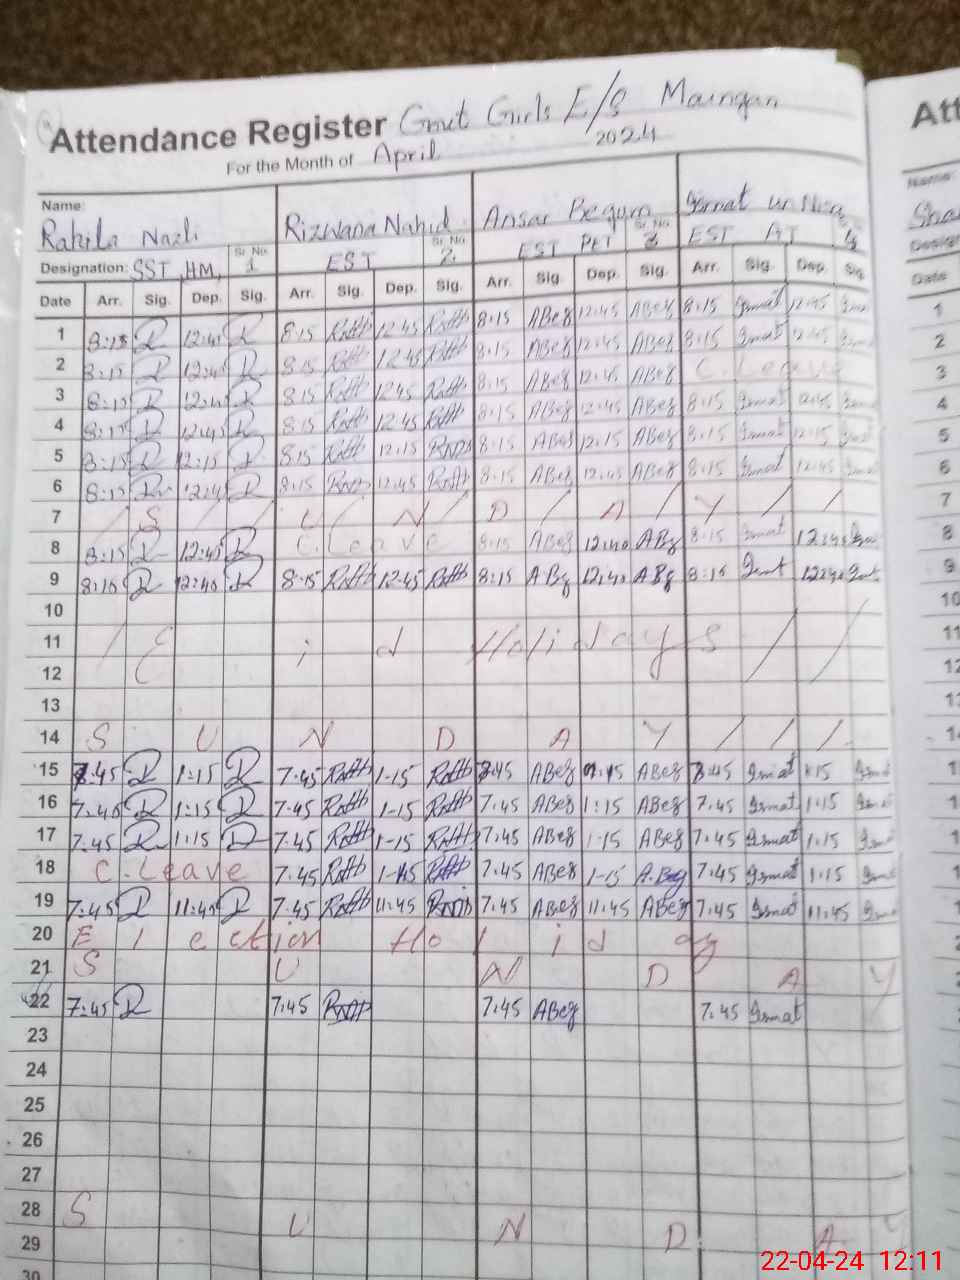 Attendance Register Govt Girls E/S Maingan
For the Month of April 2024
Name: Rahila Nazli Rizwana Nahid Ansar Begum Ismat un Nisa
Designation: SST, HM, Sr. No. 1 EST Sr. No. 2. EST PET Sr. No. 3 EST AT 4
Date Arr. Sig. Dep. Sig. Arr. Sig. Dep. Sig. Arr. Sig. Dep. Sig. Arr. Sig. Dep. Sig.
1 8:15 12:45 8:15 12:45 8:15 ABeg 12:45 ABeg 8:15 Ismat 12:45
2 8:15 12:45 8:15 12:45 8:15 ABeg 12:45 ABeg 8:15 Ismat 12:45
3 8:15 12:45 8:15 1245 8:15 ABeg 12:45 ABeg C.Leave
4 8:15 12:45 8:15 12:45 8:15 ABeg 12:45 ABeg 8:15 Ismat 12:45
5 8:15 12:15 8:15 12:15 8:15 ABeg 12:15 ABeg 8:15 Ismat 12:15
6 8:15 12:45 8:15 12:45 8:15 ABeg 12:45 ABeg 8:15 Ismat 12:45
7 / S / / U / N / D / A / Y / / /
8 8:15 12:45 C.Leave 8:15 ABeg 12:40 ABg 8:15 Ismat 12:40
9 8:15 12:40 8:15 12:45 8:15 ABg 12:40 ABg 8:15 12:40
10
11 / Eid Holidays / /
12
13
14 S U N D A Y / / /
15 7.45 1:15 7.45 1-15 7:45 ABeg 1:15 ABeg 7:45 Ismat 1:15
16 7:45 1:15 7.45 1-15 7.45 ABeg 1:15 ABeg 7.45 Ismat 1:15
17 7.45 1:15 7.45 1-15 7.45 ABeg 1-15 ABeg 7.45 Ismat 1:15
18 C.Leave 7.45 1-15 7.45 ABeg 1-15 A.Beg 7.45 Ismat 1:15
19 7:45 11:45 7.45 11.45 7.45 ABeg 11:45 ABeg 7.45 Ismat 11:45
20 Election Holiday
21 S U N D A Y
22 7:45 7.45 7.45 ABeg 7.45 Ismat
23
24
25
26
27
28 S U N D A
29
30
22-04-24 12:11
Att
Name:
Sha
Date
1
2
3
4
5
6
7
8
9
10
11
12
13